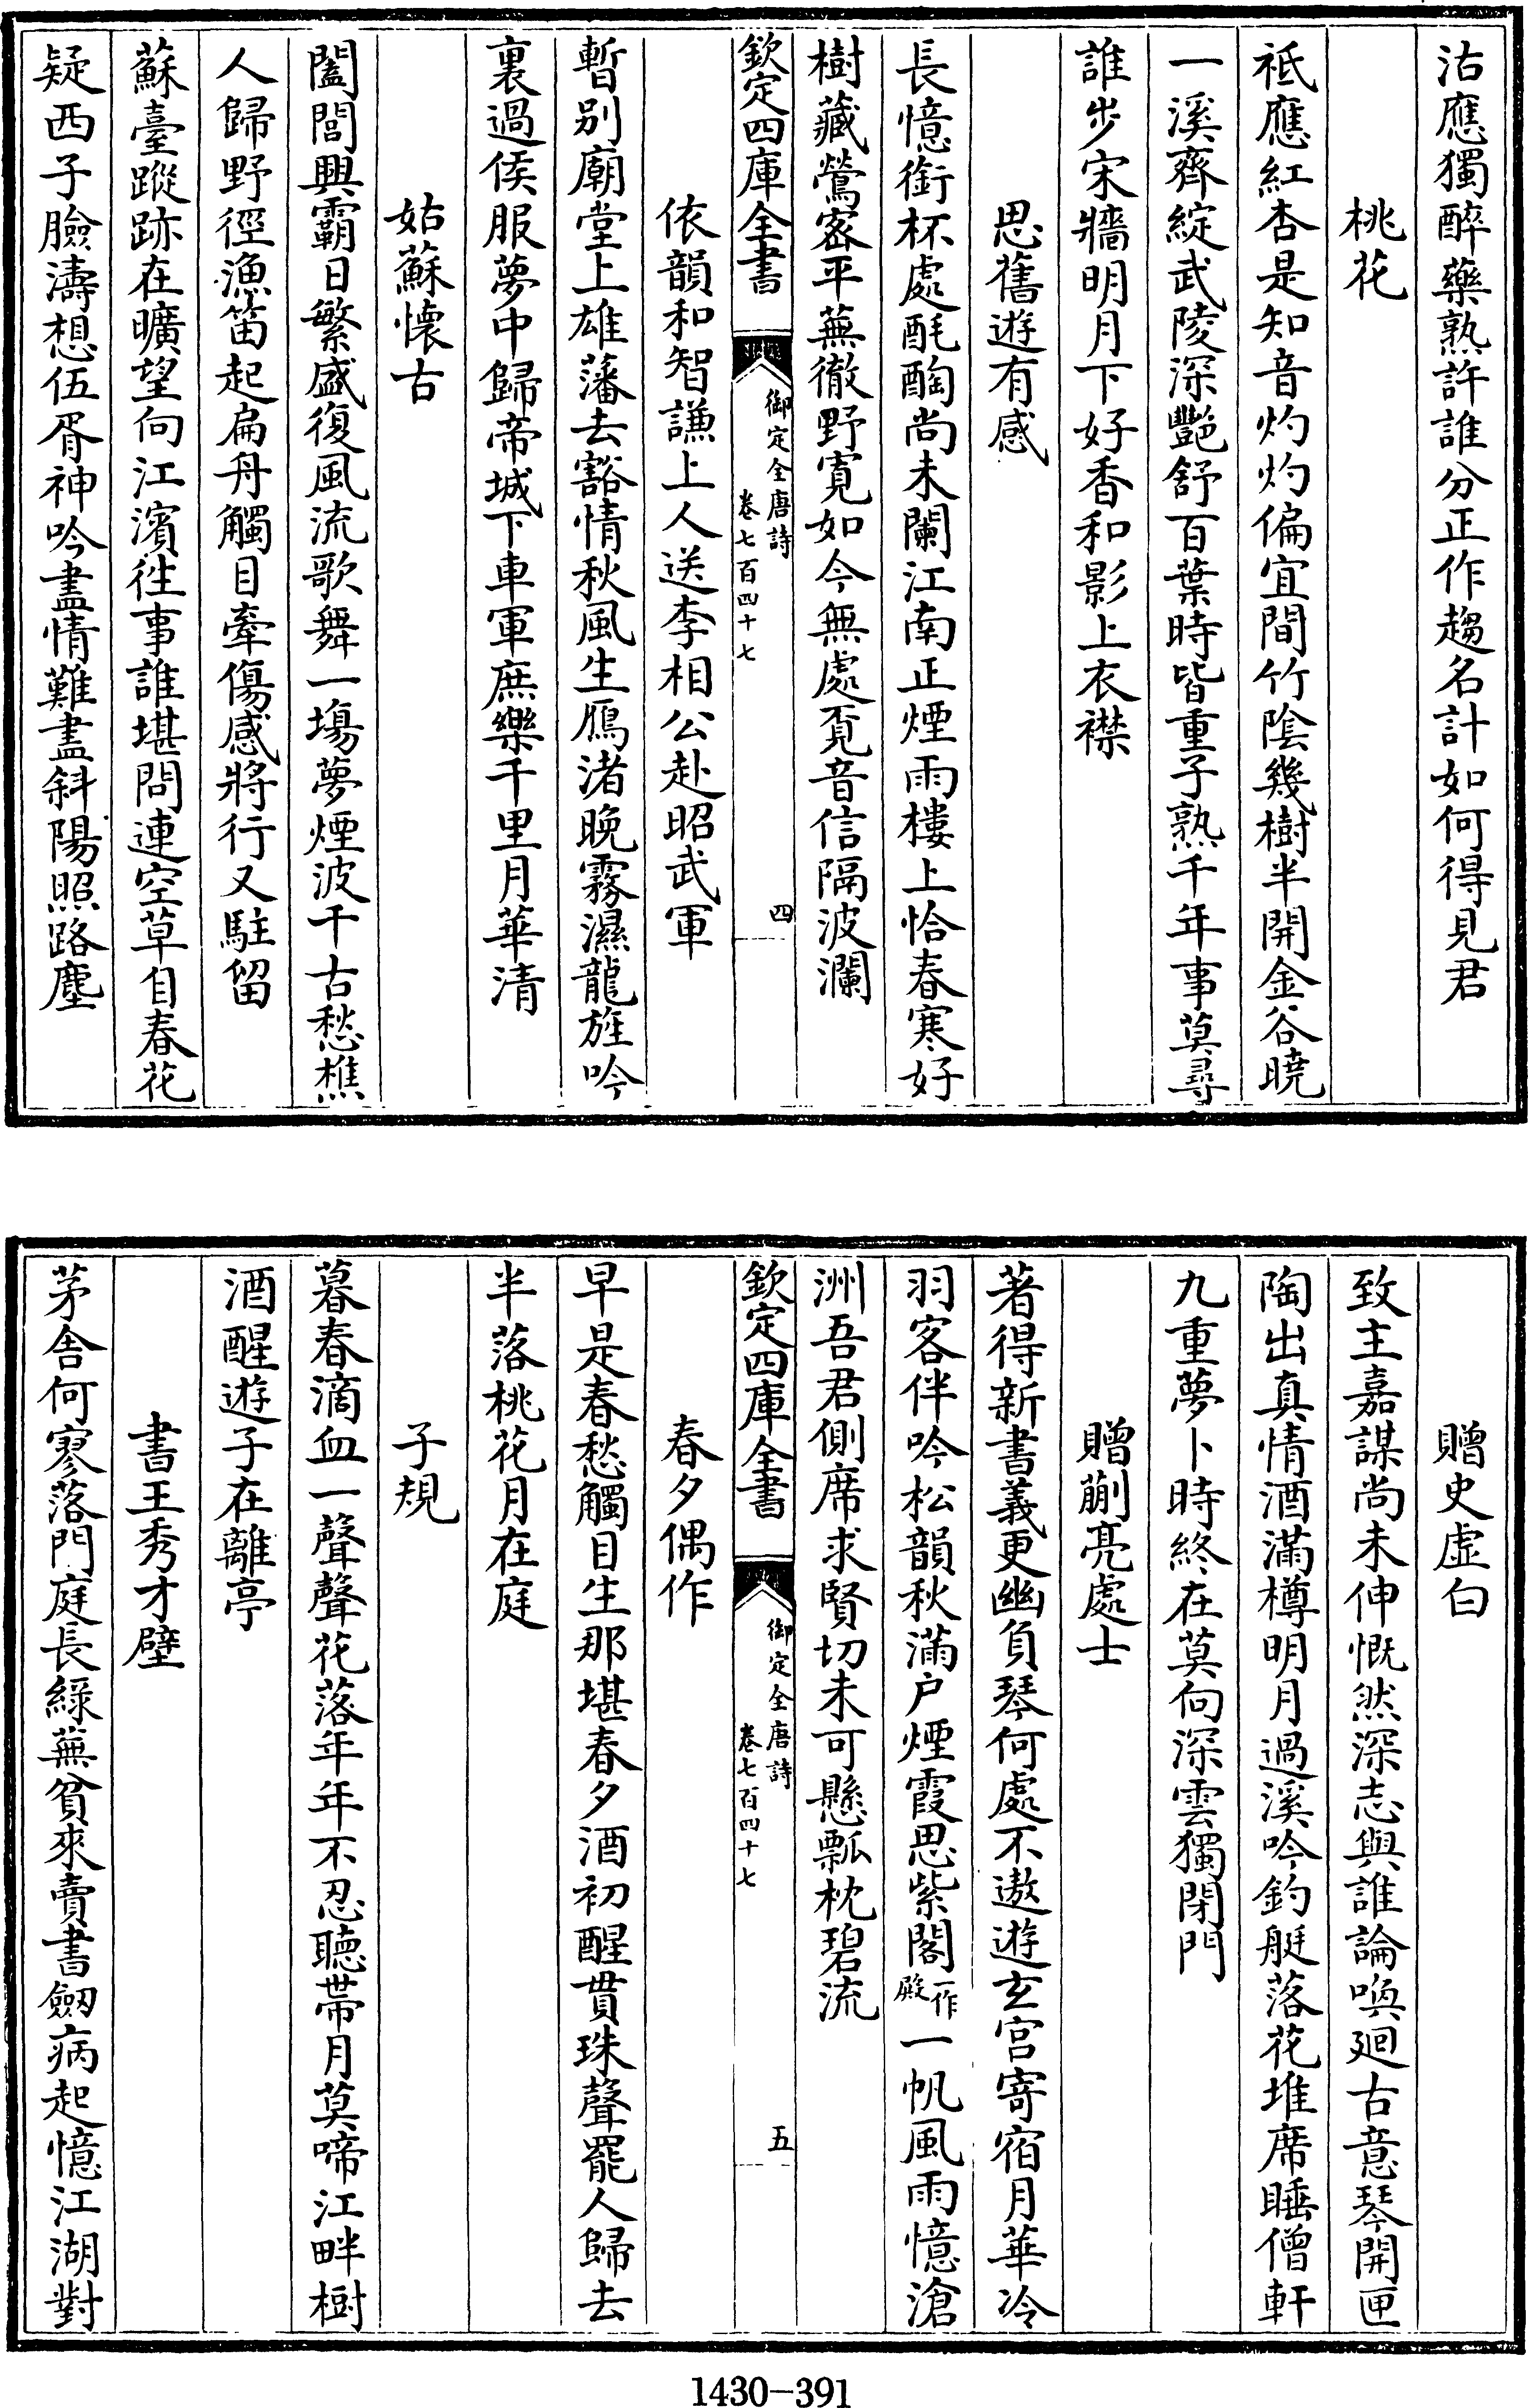 沽應獨醉藥熟許誰分正作趨名計如何得見君
桃花
祇應紅杏是知音灼灼偏宜間竹陰幾樹半開金谷曉
一溪齊綻武陵深艷舒百葉時皆重子熟千年事莫尋
誰步宋牆明月下好香和影上衣襟
思舊遊有感
長憶銜杯處酕醄尚未闌江南正煙雨樓上恰春寒好
樹藏鶯密平蕪徹野寬如今無處覔音信隔波瀾
欽定四庫全書
御定全唐詩
卷七百四十七
四
依韻和智謙上人送李相公赴昭武軍
暫别廟堂上雄藩去豁情秋風生鴈渚晚霧濕龍旌吟
裏過侯服夢中歸帝城下車軍庶樂千里月華清
姑蘇懷古
闔閭興霸日繁盛復風流歌舞一塲夢煙波千古愁樵
人歸野徑漁笛起扁舟觸目牽傷感將行又駐留
蘇臺蹤跡在曠望向江濱徃事誰堪問連空草自春花
疑西子臉濤想伍胥神吟盡情難盡斜陽照路塵
贈史虛白
致主嘉謀尚未伸慨然深志與誰論喚廻古意琴開匣
陶出真情酒滿樽明月過溪吟釣艇落花堆席睡僧軒
九重夢卜時終在莫向深雲獨閉門
贈蒯亮處士
著得新書義更幽負琴何處不遨遊玄宫寄宿月華冷
羽客伴吟松韻秋滿户煙霞思紫閣一作殿一帆風雨憶滄
洲吾君側席求賢切未可懸瓢枕碧流
欽定四庫全書
御定全唐詩
卷七百四十七
五
春夕偶作
早是春愁觸目生那堪春夕酒初醒貫珠聲罷人歸去
半落桃花月在庭
子規
暮春滴血一聲聲花落年年不忍聽帶月莫啼江畔樹
酒醒遊子在離亭
書王秀才壁
茅舍何寥落門庭長緑蕪貧來賣書劒病起憶江湖對
1430-391